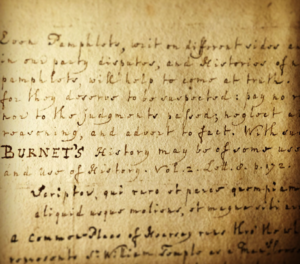 Even Pamphlets, writ on different sides and
in our party disputes, and Histories of
pamphlets, will help to come at truth.
for they deserve to be suspected; pay no r
now to the judgments passed; neglect a
reasoning, and advert to fact. With su
BURNET'S History may be of some use
and use of History. Vol. 2. Lett. 5. p. 172.
Scriptor, qui vero et
aliquid usque
a Common-Place of
represents Sr. William Temple as a